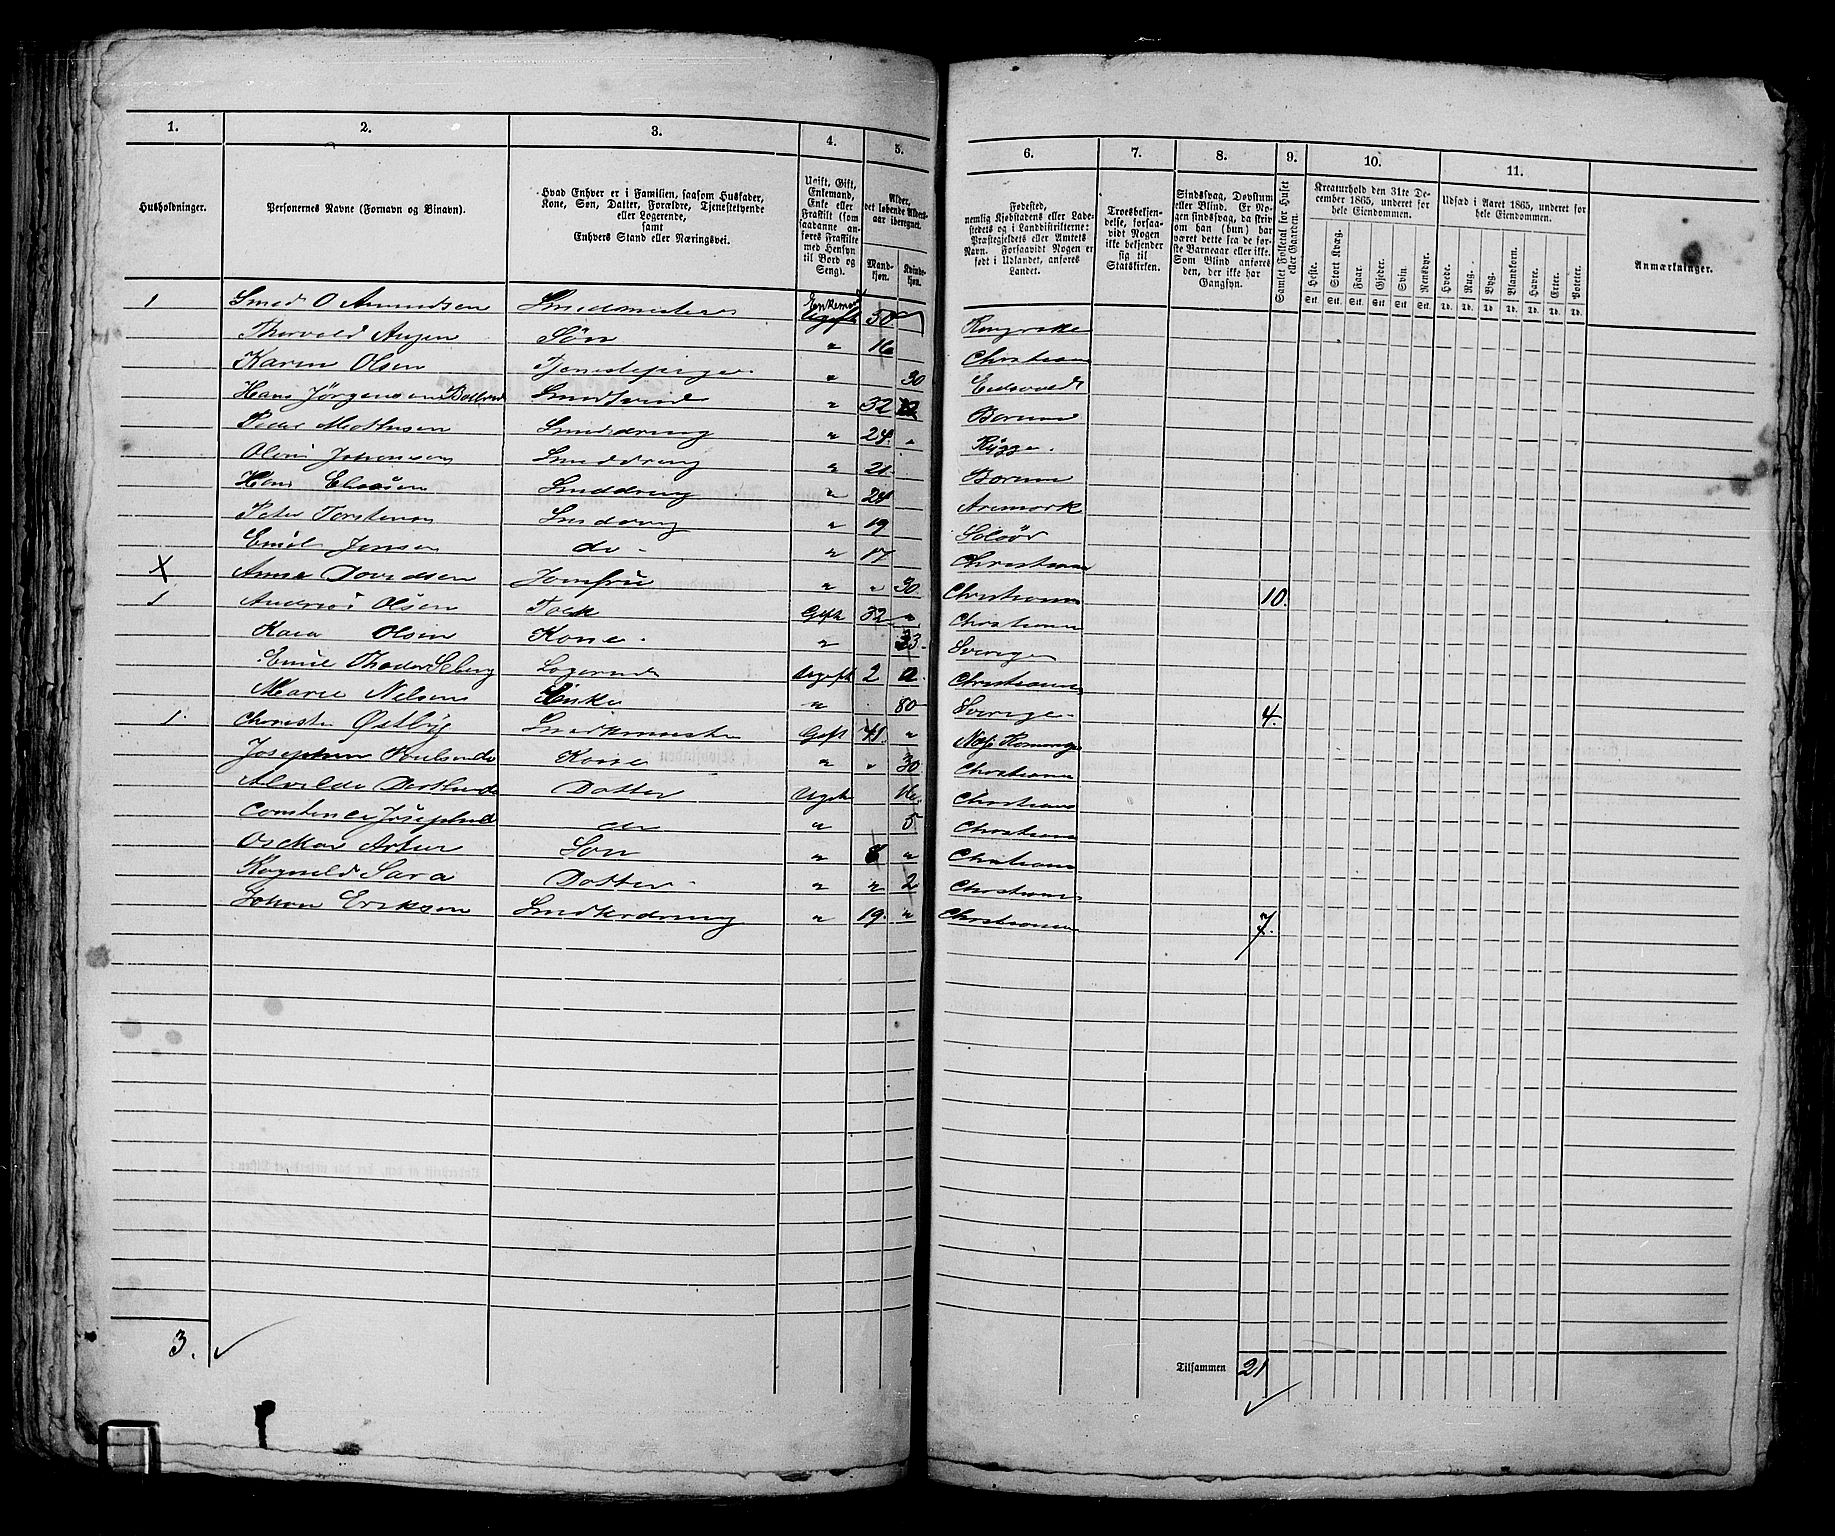 1. 2. 3. 4. 5. 6. 7. 8. 9. 10. 11.
Husholdninger.
Personernes Navne (Fornavn og Binavn).
Hvad Enhver er i Familien, saasom Husfader,
Kone, Søn, Datter, Forældre, Tjenestetyende
eller Logerende,
samt
Enhvers Stand eller Næringsvei.
Ugift, Gift,
Enkemand,
Enke eller
Fraskilt (som
saadanne an-
føres Fraskilte
med Hensyn
til Bord og
Seng).
Alder,
det løbende Alders-
aar iberegnet.
Mand-
kjøn.
Kvinde-
kjøn.
Fødested,
nemlig Kjøbstadens eller Lade-
stedets og i Landdistrikterne:
Præstegjeldets eller Amtets
Navn. Forsaavidt Nogen er
født i Udlandet, anføres
Landet.
Troesbekjen-
delse, forsaa-
vidt Nogen
ikke bekjender
sig til
Statskirken.
Sindssvag, Døvstum
eller Blind. Er No-
gen sindssvag, da skriv
om han (hun) har
været dette fra de før-
ste Barneaar eller ikke.
Som Blind anføres
den, der ikke har
Gangsyn.
Samlet Folketal for Huset
eller Gaarden.
Kreaturhold den 31te De-
cember 1865, underet for
hele Eiendommen.
Heste. Stort Kvæg. Faar. Gjeder. Svin. Rensdyr.
Stk. Stk. Stk. Stk. Stk. Stk.
Udsæd i Aaret 1865, underet for
hele Eiendommen.
Hvede. Rug. Byg. Blandkorn. Havre. Erter. Poteter.
Td. Td. Td. Td. Td. Td. Td.
Anmærkninger.
1 Smed O Amundsen Smedmester Enkemand 50 Ringerike
Thorvald Søn " 16 Christiania
Karen Olsen Tjenestepige " 30 Eidsvold
Hans Jørgensen Smedsvend " 32 Bærum
Peder Mathisen Smeddreng " 24 " Rygge.
Johansen Smeddreng " 21 Bærum
Hans Smeddreng " Aremark
Peter Torstensen Smeddreng " 19 Soløør
Emil Jensen do - " 17 Christiania
X Anne Davidsen Jomfru " " 30 Christiania 10.
1 Olsen Gift 32 " Christiania
Olsen Kone. " 33. Sverige
Emil Logerende Ugift 2 Christiania
Marie Nilsen Enke " 80 Sverige - 4.
1 Østbÿg Gift 41. "
Josephine Kone " " 30 Christiania
Datter Ugift 16. Christiania
do " 5 Christiania
Osckar Artur Søn " 8 " Christiania
Ragnild Sara Datter " " 2 Christiania
Johan Eriksen " 19. " Christiania 7.
3.
Tilsammen 21